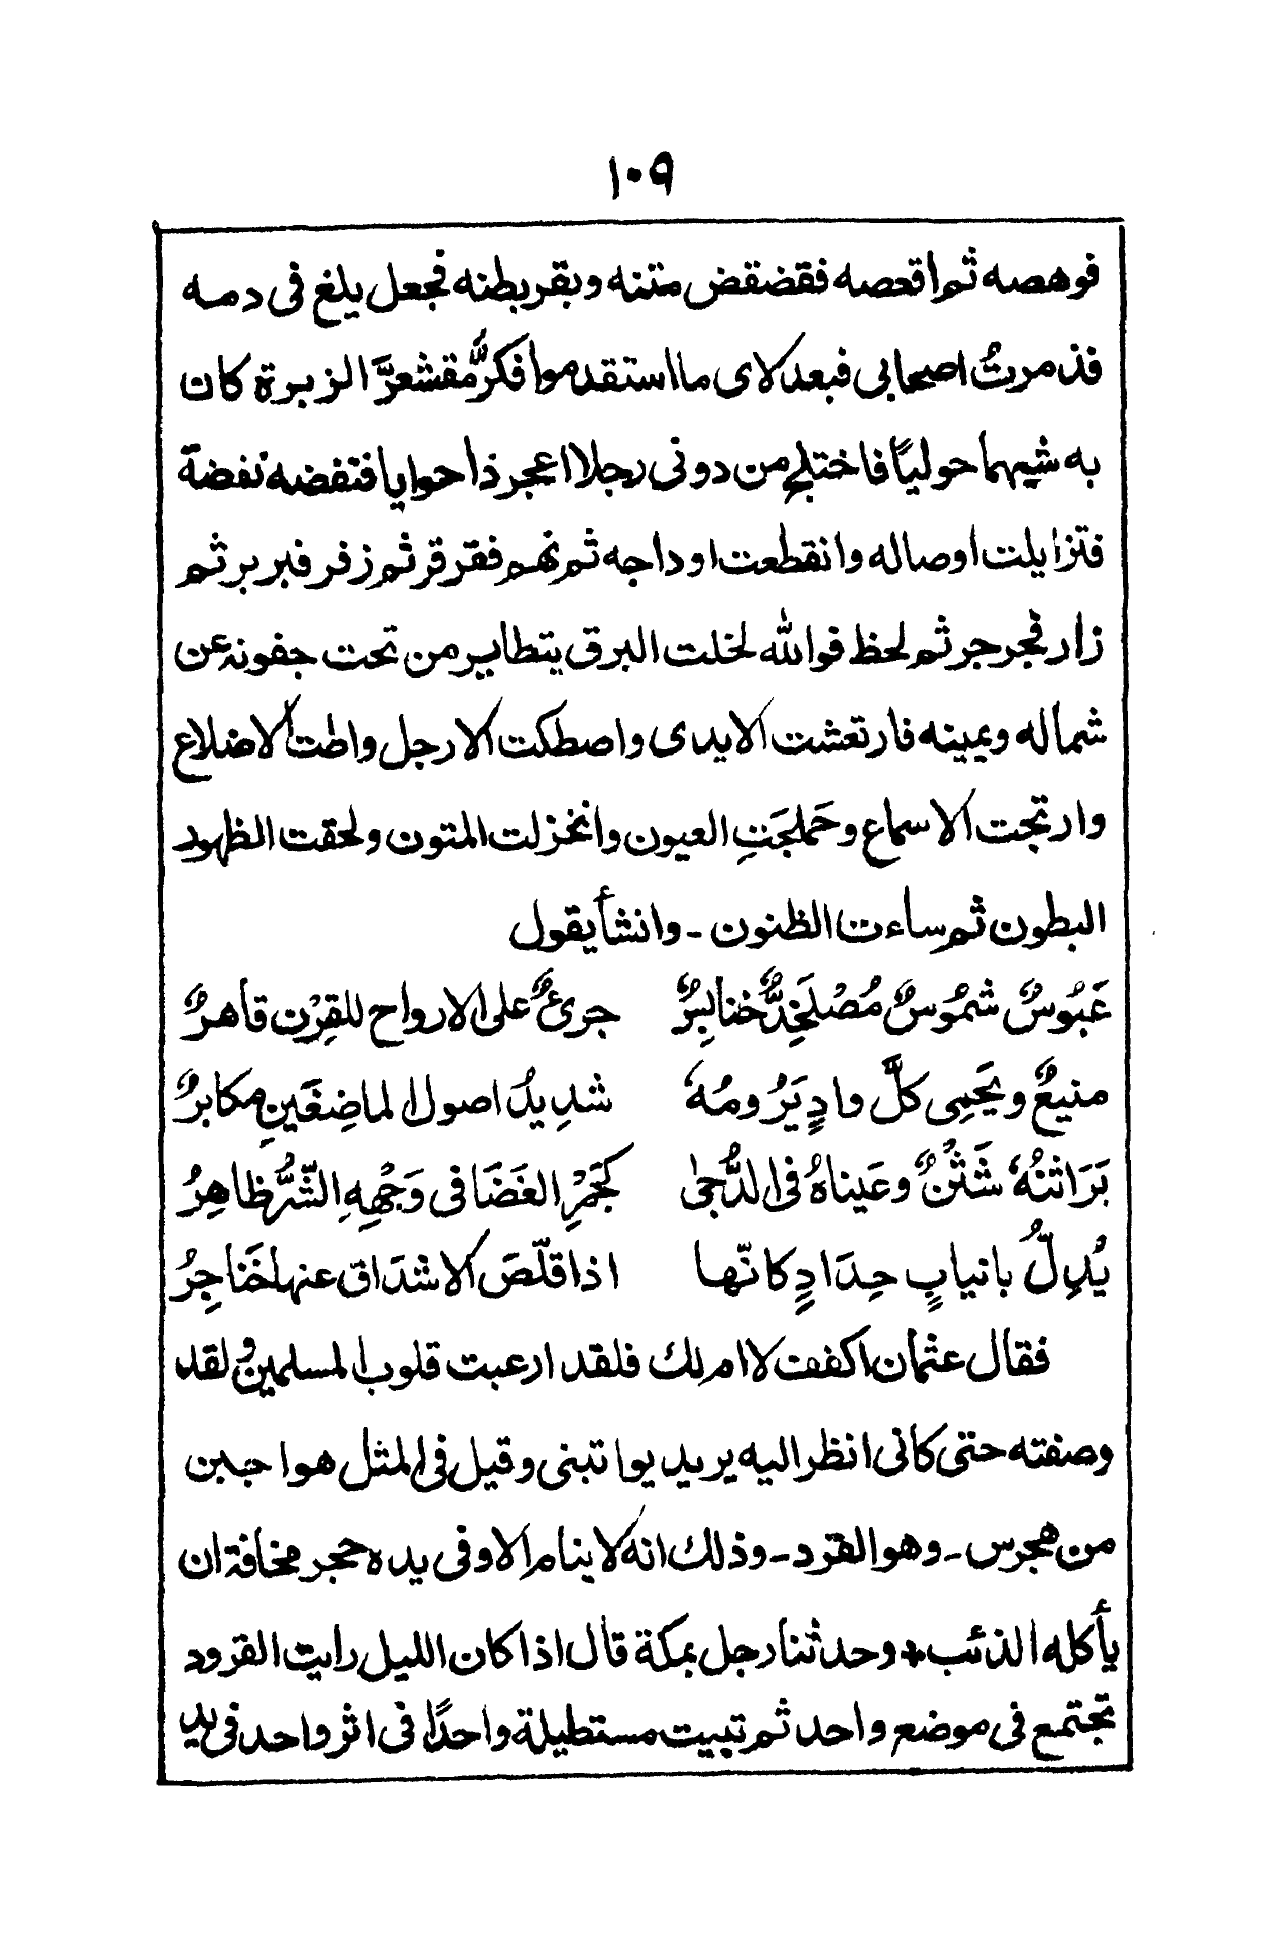 ١٠٩
فوهصه ثم اقعصه فقضقض متنه وبقر بطنه فجعل يلغ فى دمه
فذمرتُ اصحابى فبعد لاى ما استقدموا فكرَّ مُقشعرَّ الزبرة كان
به شيهما حوليًا فاختلج من دونى رجلا اعجر ذا حوايا فنفضه نفضة
فتزايلت اوصاله وانقطعت اوداجه ثم نهم فقرقر ثم زفر فبربر ثم
زأر فجرجر ثم لحظ فوالله لخلت البرق يتطاير من تحت جفونه عن
شماله ويمينه فارتعشت الايدى واصطكت الارجل واطت الاضلاع
وارتجت الاسماع وحَملجَتِ العيون وانخزلت المتون ولحقت الظهور
البطون ثم ساءت الظنون - وانشأ يقول
عَبُوسٌ شمُوسٌ مُصْلَخِدٌّ خنابِسٌ جرئٌ على الارواح للقِرْن قاهرٌ
منيعٌ ويَحمِى كلَّ وادٍ يَرُومُهٗ شدِيدُ اصول الماضِغَينِ مكابرٌ
بَرَاثنُهٗ شَثْنٌ وعَيناهُ فى الدُّجى كجَمْرِ الغَضَا فى وَجْهِهِ الشَّرُّ ظاهِرُ
يُدِلُّ بانيابٍ حِدَادٍ كانّها اذا قلّصَ الاشدَاق عنها خَناجِرُ
فقال عثمان اكفف لا ام لك فلقد ارعبت قلوب المسلمين ولقد
وصفته حتى كانى انظر اليه يريد يواثبنى وقيل فى المثل هو اجبن
من هجرس - وهو القرد - وذلك انه لا ينام الا وفى يده حجر مخافة ان
يأكله الذئب + وحدثنا رجل بمكة قال اذا كان الليل رايت القرود
تجتمع فى موضع واحد ثم تبيت مستطيلة واحدًا فى اثر واحد فى يد